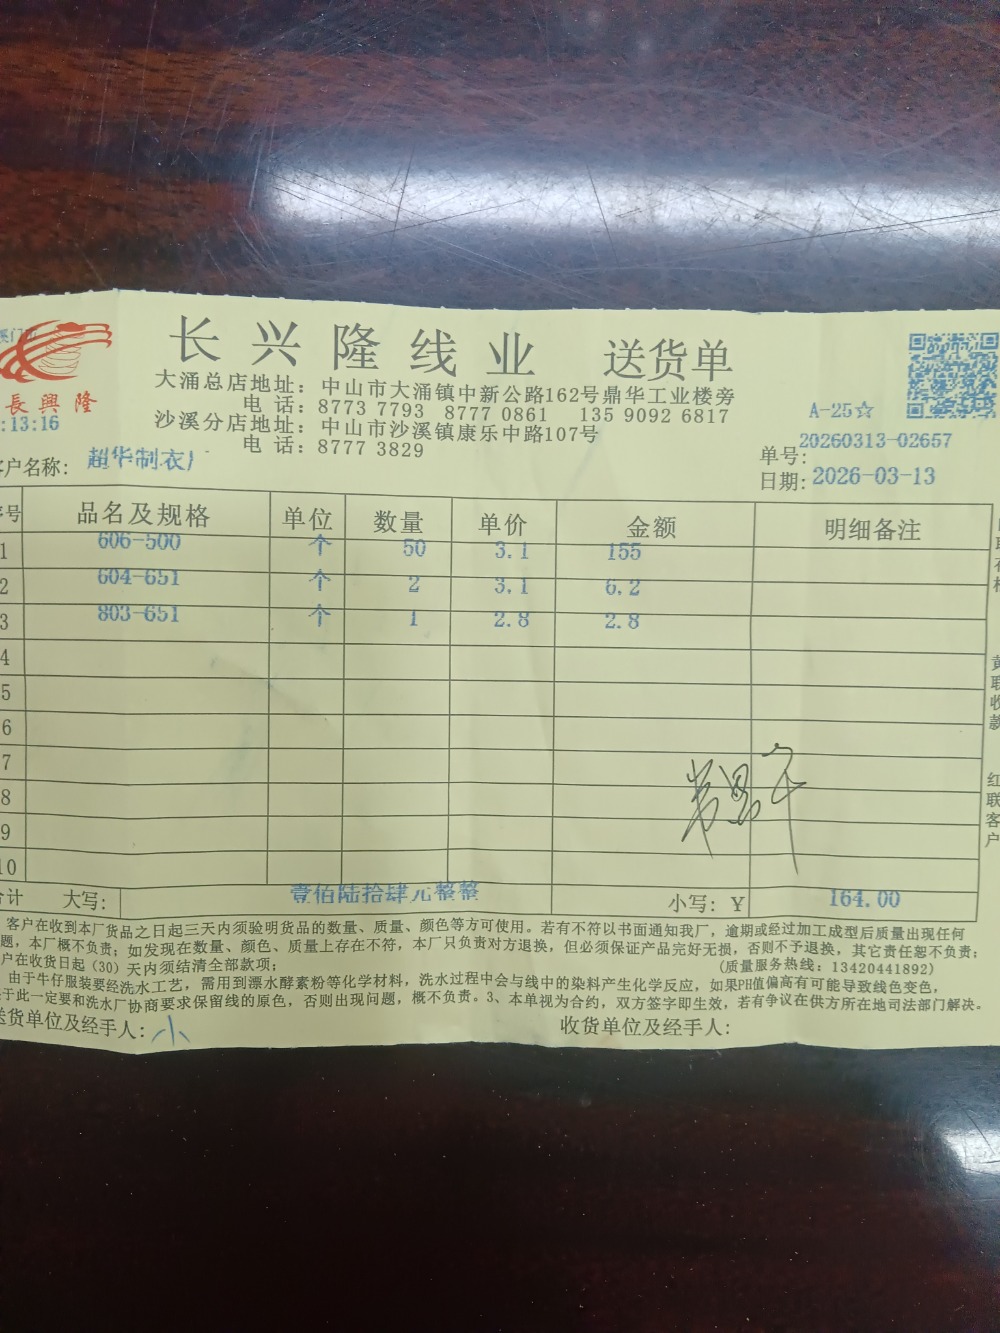 长兴隆线业 送货单
長興隆
:13:16
大涌总店地址：中山市大涌镇中新公路162号鼎华工业楼旁
电 话：8773 7793 8777 0861 135 9092 6817
沙溪分店地址：中山市沙溪镇康乐中路107号
电 话：8777 3829
A-25☆
单号：20260313-02657
日期：2026-03-13
客户名称：超华制衣厂
序号 品名及规格 单位 数量 单价 金额 明细备注
1 606-500 个 50 3.1 155
2 604-651 个 2 3.1 6.2
3 803-651 个 1 2.8 2.8
4
5
6
7
8
9
10
合计 大写：壹佰陆拾肆元整整 小写：Y 164.00
客户在收到本厂货品之日起三天内须验明货品的数量、质量、颜色等方可使用。若有不符以书面通知我厂，逾期或经过加工成型后质量出现任何
题，本厂概不负责；如发现在数量、颜色、质量上存在不符，本厂只负责对方退换，但必须保证产品完好无损，否则不予退换，其它责任恕不负责；
户在收货日起（30）天内须结清全部款项；
（质量服务热线：13420441892）
由于牛仔服装要经洗水工艺，需用到漂水酵素粉等化学材料，洗水过程中会与线中的染料产生化学反应，如果PH值偏高有可能导致线色变色，
于此一定要和洗水厂协商要求保留线的原色，否则出现问题，概不负责。3、本单视为合约，双方签字即生效，若有争议在供方所在地司法部门解决。
送货单位及经手人：小
收货单位及经手人：
黄联收款
红联客户